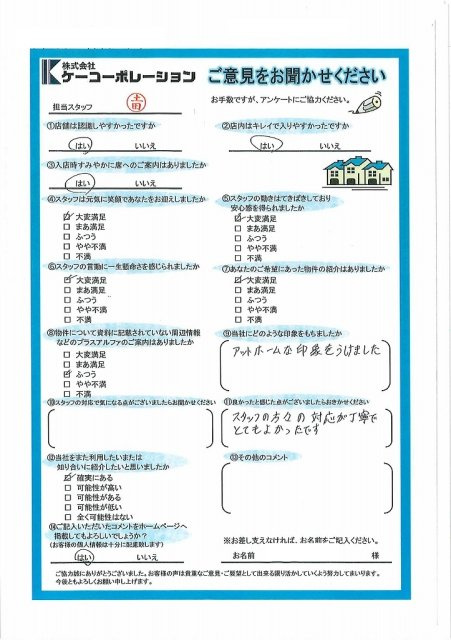 株式会社
ケーコーポレーション
ご意見をお聞かせください
担当スタッフ
お手数ですが、アンケートにご協力ください。
①店舗は認識しやすかったですか
はい いいえ
②店内はキレイで入りやすかったですか
はい いいえ
③入店時すみやかに席へのご案内はありましたか
はい いいえ
④スタッフは元気に笑顔であなたをお迎えしましたか
大変満足
まあ満足
ふつう
やや不満
不満
⑤スタッフの動きはてきぱきしており
安心感を得られましたか
大変満足
まあ満足
ふつう
やや不満
不満
⑥スタッフの言動に一生懸命さを感じられましたか
大変満足
まあ満足
ふつう
やや不満
不満
⑦あなたのご希望にあった物件の紹介はありましたか
大変満足
まあ満足
ふつう
やや不満
不満
⑧物件について資料に記載されていない周辺情報
などのプラスアルファのご案内はありましたか
大変満足
まあ満足
ふつう
やや不満
不満
⑨当社にどのような印象をもちましたか
アットホームな印象をうけました
⑩スタッフの対応で気になる点がございましたらお聞かせください
⑪良かったと感じた点がございましたらおきかせください
スタッフの方々の対応が丁寧で
とてもよかったです
⑫当社をまた利用したいまたは
知り合いに紹介したいと思いましたか
確実にある
可能性が高い
可能性がある
可能性が低い
全く可能性はない
⑬その他のコメント
⑭ご記入いただいたコメントをホームページへ
掲載してもよろしいでしょうか？
(お客様の個人情報は十分に配慮致します)
はい いいえ
※お差し支えなければ、お名前をご記入ください。
お名前 様
ご協力誠にありがとうございました。お客様の声は貴重なご意見・ご要望として出来る限り活かしていくよう努力してまいります。
今後ともよろしくお願い申し上げます。